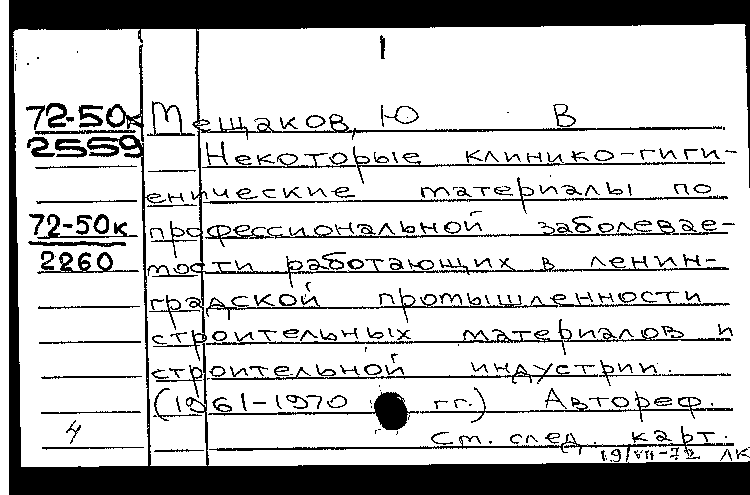 1
72-50к Мещаков, Ю В
2559 Некоторые клинико-гиги-
енические материалы по
72-50к профессиональной заболевае-
2260 мости работающих в ленин-
градской промышленности
строительных материалов и
строительной индустрии.
(1961-1970 гг.) Автореф.
4 Ст. след. карт.
19/VII-72 ЛК